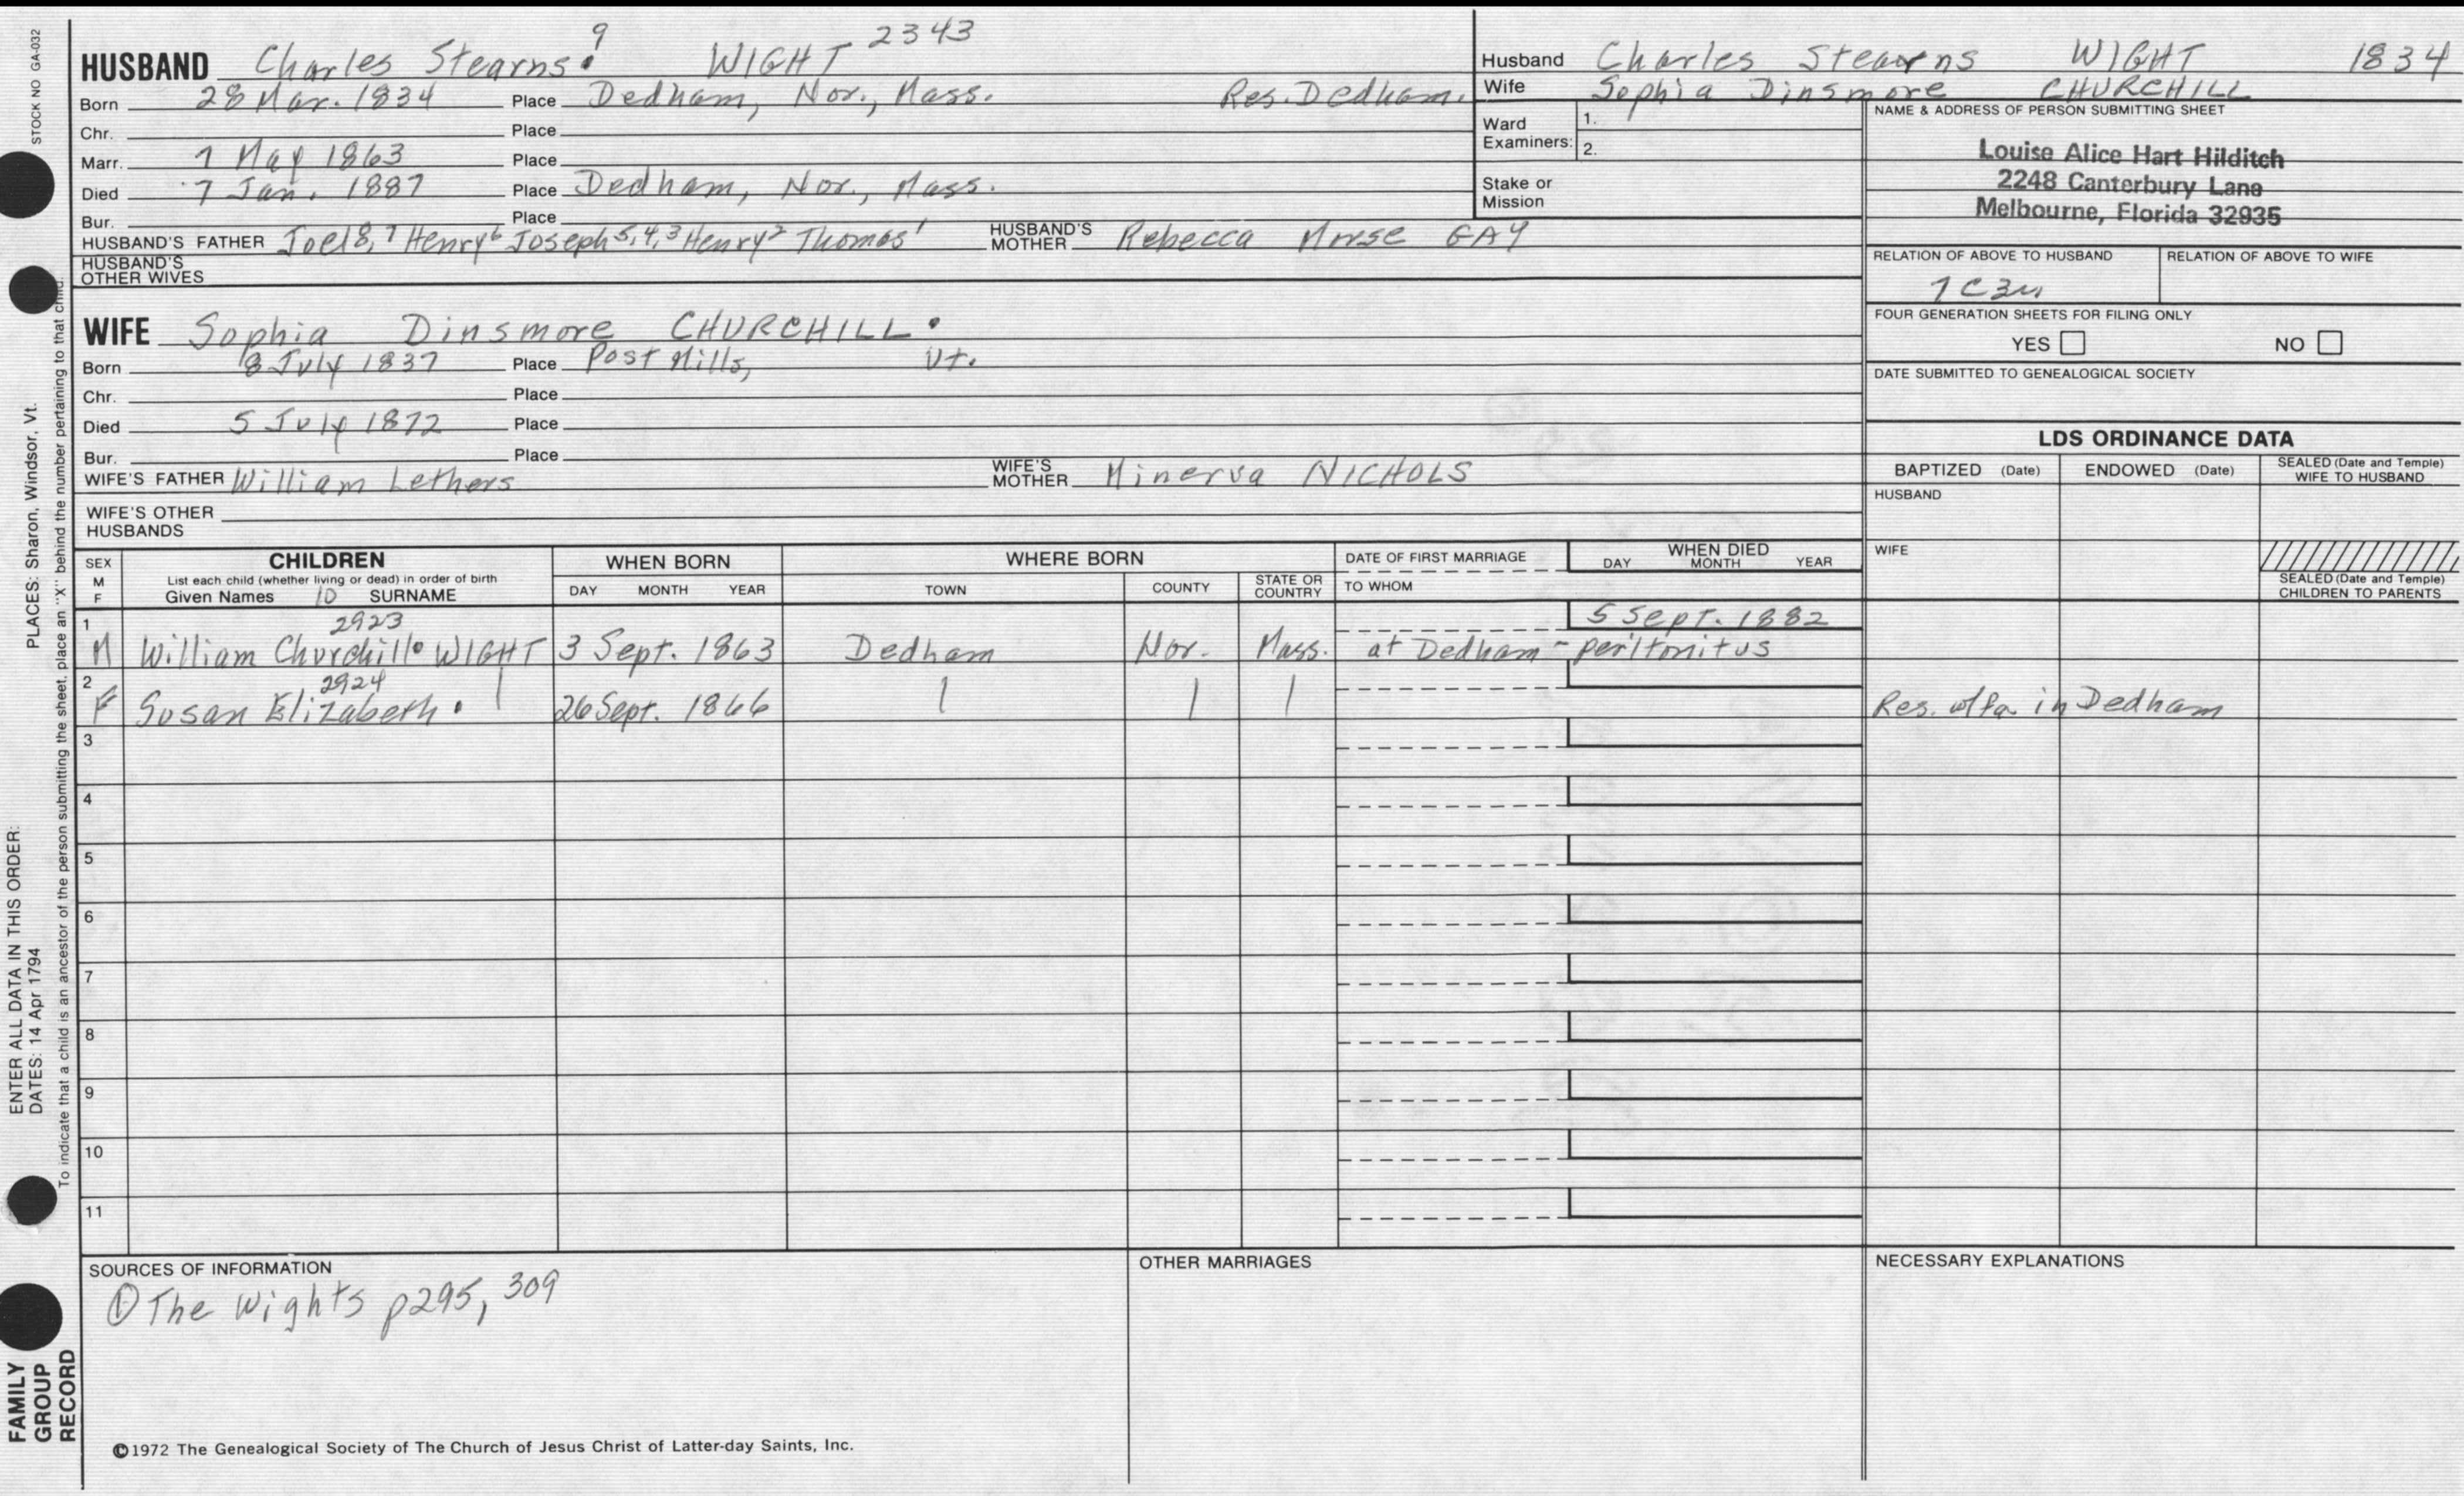 STOCK NO GA-032
HUSBAND Charles Stearns 9 WIGHT 2343
Born 28 Mar. 1834 Place Dedham, Nor., Mass. Res. Dedham.
Chr. Place
Marr. 7 May 1863 Place
Died 7 Jan. 1887 Place Dedham, Nor., Mass.
Bur. Place
HUSBAND'S FATHER Joel8, 7 Henry6 Joseph5,4,3 Henry2 Thomas1 HUSBAND'S MOTHER Rebecca Morse GAY
HUSBAND'S OTHER WIVES
Husband Charles Stearns WIGHT 1834
Wife Sophia Dinsmore CHURCHILL
Ward Examiners: 1.
2.
Stake or Mission
NAME & ADDRESS OF PERSON SUBMITTING SHEET
Louise Alice Hart Hilditch
2248 Canterbury Lane
Melbourne, Florida 32935
RELATION OF ABOVE TO HUSBAND RELATION OF ABOVE TO WIFE
7C3R
FOUR GENERATION SHEETS FOR FILING ONLY
YES NO
DATE SUBMITTED TO GENEALOGICAL SOCIETY
WIFE Sophia Dinsmore CHURCHILL.
Born 8 July 1837 Place Post Mills, Vt.
Chr. Place
Died 5 July 1872 Place
Bur. Place
WIFE'S FATHER William Lethers WIFE'S MOTHER Minerva NICHOLS
WIFE'S OTHER HUSBANDS
LDS ORDINANCE DATA
BAPTIZED (Date) ENDOWED (Date) SEALED (Date and Temple) WIFE TO HUSBAND
HUSBAND
WIFE
SEALED (Date and Temple) CHILDREN TO PARENTS
SEX M F
CHILDREN
List each child (whether living or dead) in order of birth
Given Names 10 SURNAME
WHEN BORN
DAY MONTH YEAR
WHERE BORN
TOWN COUNTY STATE OR COUNTRY
DATE OF FIRST MARRIAGE
TO WHOM
WHEN DIED
DAY MONTH YEAR
1 2923 5 Sept. 1882
M William Churchill. WIGHT 3 Sept. 1863 Dedham Nor. Mass. at Dedham - peritonitus
2 2924
F Susan Elizabeth. 26 Sept. 1866 Res. w/fa in Dedham
3
4
5
6
7
8
9
10
11
SOURCES OF INFORMATION
① The Wights p295, 309
OTHER MARRIAGES
NECESSARY EXPLANATIONS
©1972 The Genealogical Society of The Church of Jesus Christ of Latter-day Saints, Inc.
ENTER ALL DATA IN THIS ORDER:
DATES: 14 Apr 1794
PLACES: Sharon, Windsor, Vt.
To indicate that a child is an ancestor of the person submitting the sheet, place an "X" behind the number pertaining to that child.
FAMILY
GROUP
RECORD